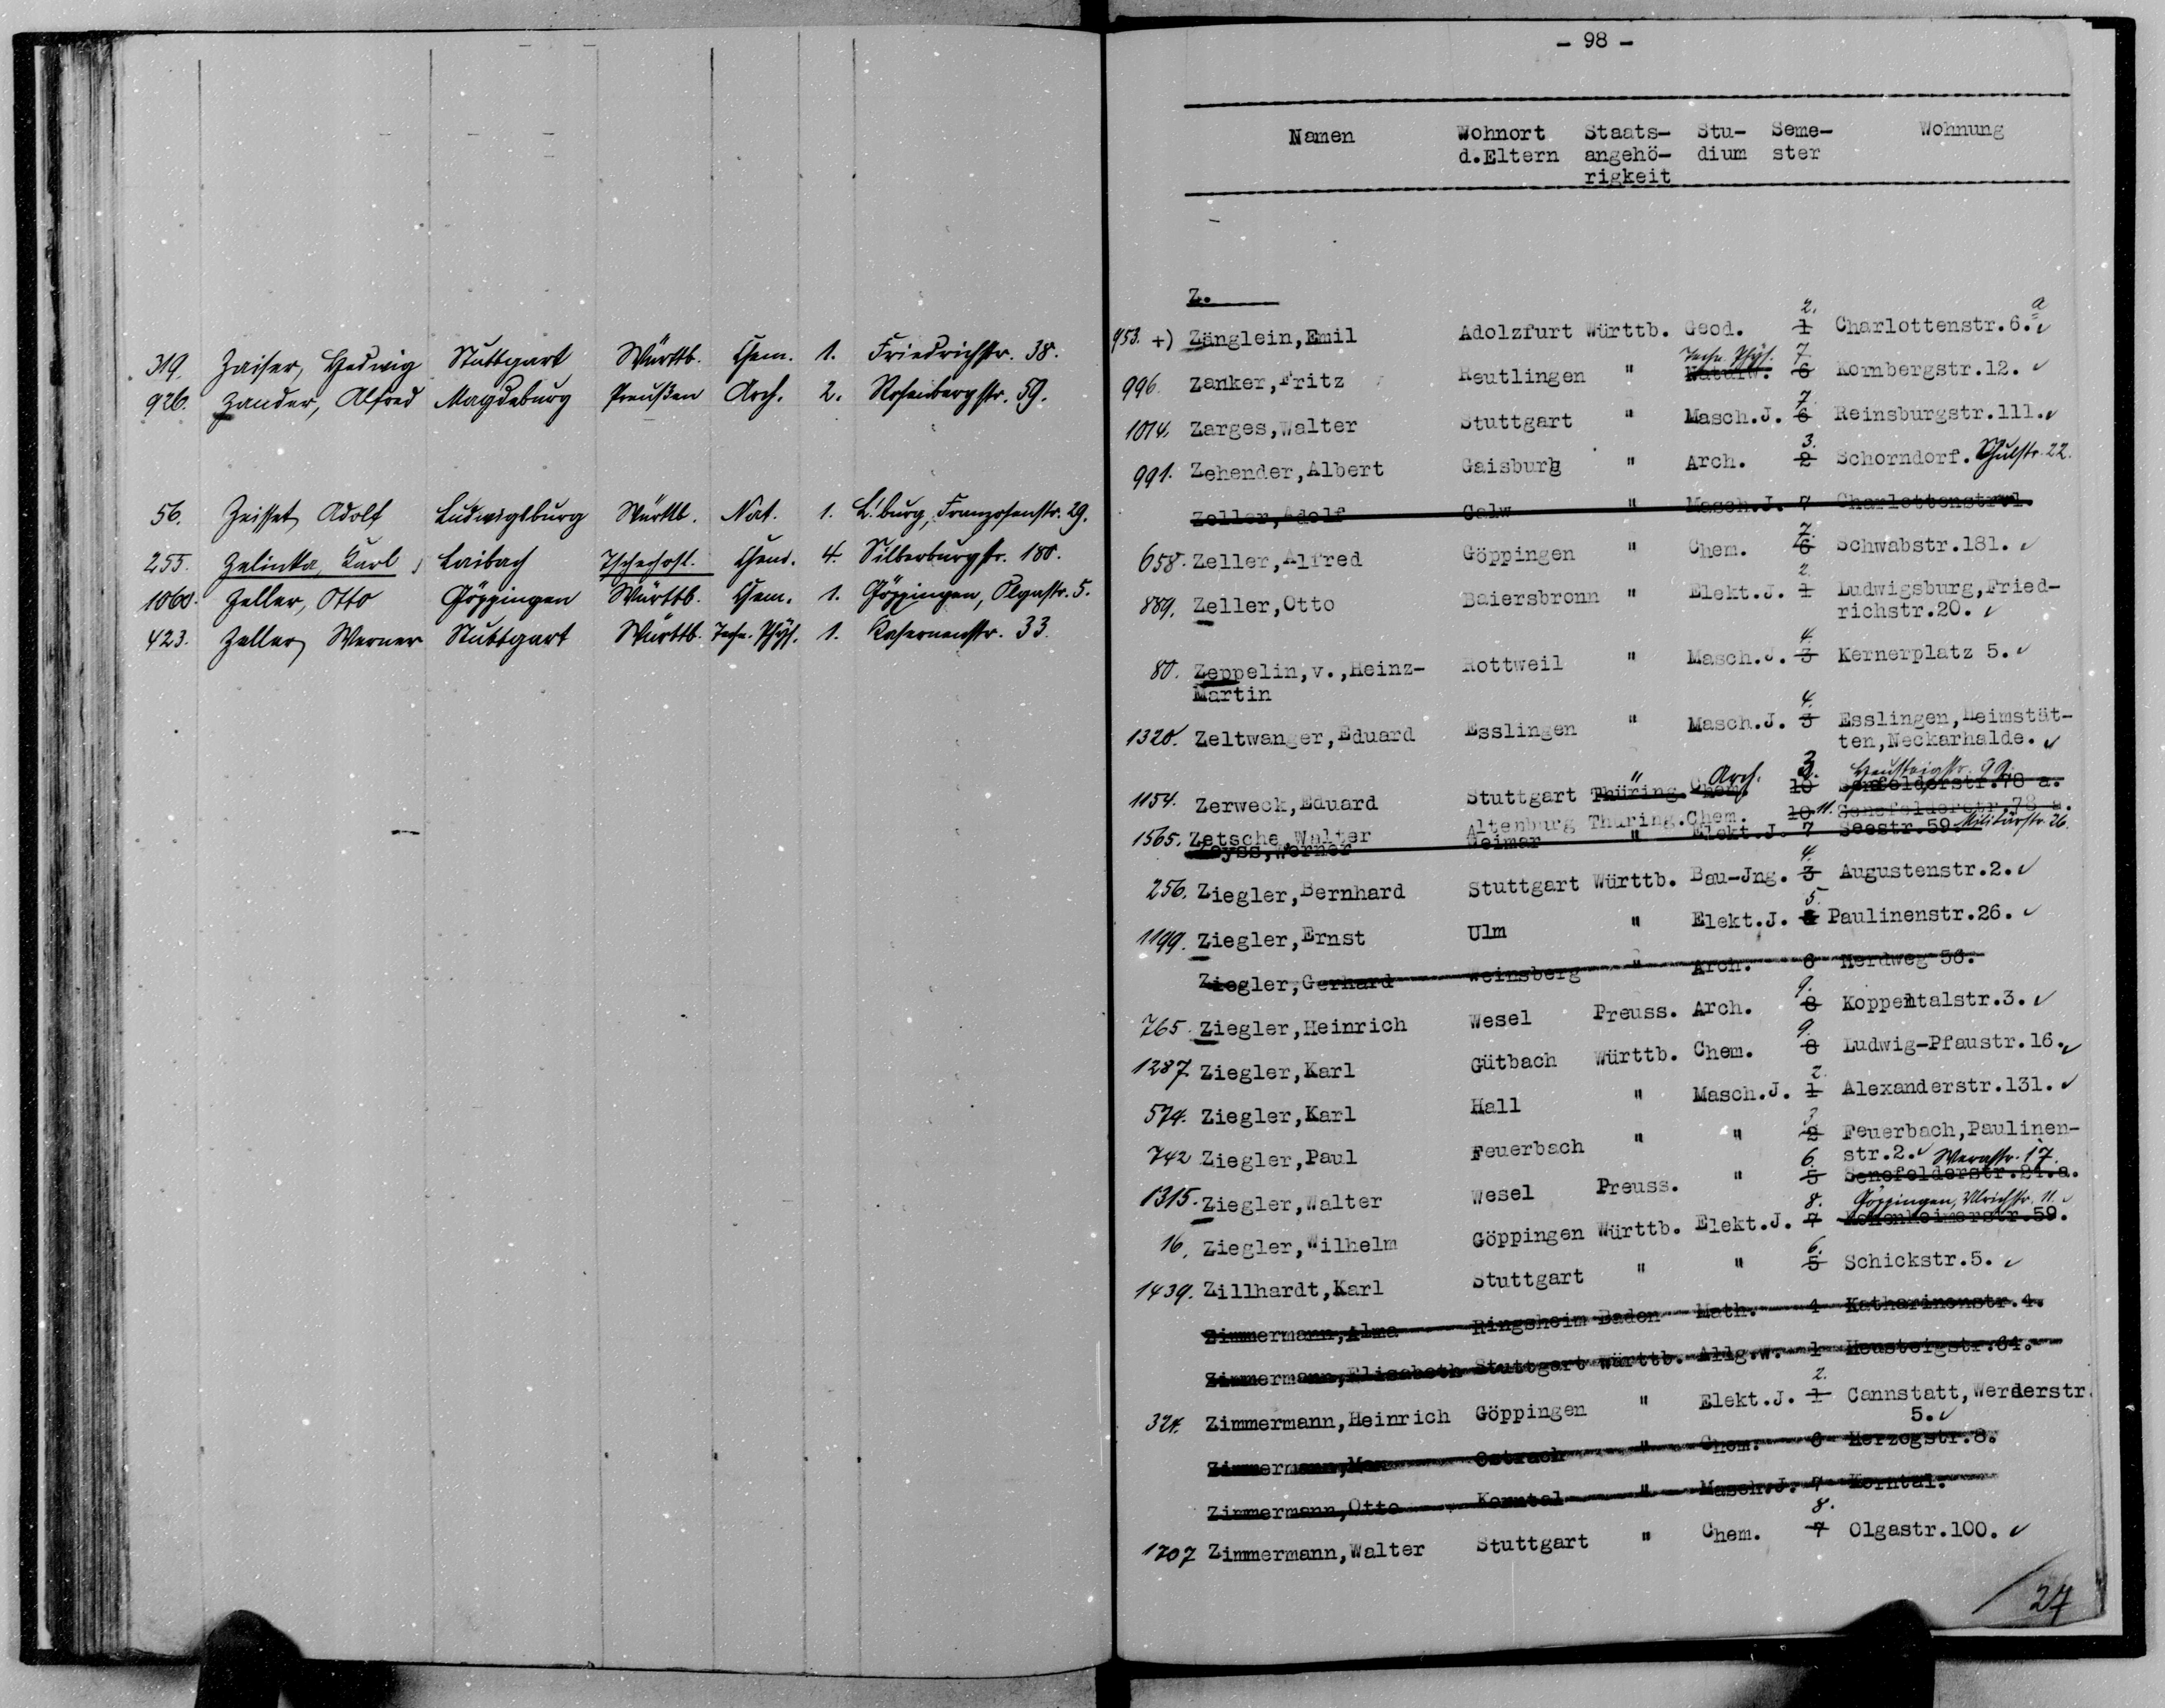 319. Zaiser, Hedwig Stuttgart Württb. Chem. 1. Friedrichstr. 38.
926. Zander, Alfred Magdeburg Preußen Arch. 2. Rosenbergstr. 59.
56. Zeisset, Adolf Ludwigsburg Württb. Nat. 1. L'burg, Franzosenstr. 29.
255. Zelinka, Karl Laibach Tschechosl. Chem. 4. Silberburgstr. 180.
1060. Zeller, Otto Göppingen Württb. Chem. 1. Göppingen, Olgastr. 5.
423. Zeller, Werner Stuttgart Württb. Techn. Phys. 1. Kasernenstr. 33.
- 98 -
Namen Wohnort Staats- Stu- Seme- Wohnung
d.Eltern angehö- dium ster
rigkeit
Z.
2. a
953. +) Zänglein,Emil Adolzfurt Württb. Geod. 1 Charlottenstr.6.
Techn. Phys. 7.
996. Zanker,Fritz Reutlingen " Naturw. 6 Kornbergstr.12.
7.
1014. Zarges,Walter Stuttgart " Masch.J. 6 Reinsburgstr.111.
3.
991. Zehender,Albert Gaisburg " Arch. 2 Schorndorf. Schulstr. 22.
Zeller,Adolf Calw " Masch.J. 7 Charlottenstr.1.
7.
658. Zeller,Alfred Göppingen " Chem. 6 Schwabstr.181.
2.
889. Zeller,Otto Baiersbronn " Elekt.J. 1 Ludwigsburg,Fried-
richstr.20.
4.
80. Zeppelin,v.,Heinz- Rottweil " Masch.J. 3 Kernerplatz 5.
Martin
4.
1320. Zeltwanger,Eduard Esslingen " Masch.J. 3 Esslingen,Heimstät-
ten,Neckarhalde.
" Arch. 3. Heusteigstr. 99.
1154. Zerweck,Eduard Stuttgart Thüring. Chem. 10 Senefelderstr.78 a.
1565. Zetsche,Walter Altenburg Thüring. Chem. 10 11. Senefelderstr.78 a. Militärstr. 26.
Zeyss,Werner Weimar " Elekt.J. 7 Seestr.59
4.
256. Ziegler,Bernhard Stuttgart Württb. Bau-Jng. 3 Augustenstr.2.
5.
1199. Ziegler,Ernst Ulm " Elekt.J. Paulinenstr.26.
Ziegler,Gerhard Weinsberg " Arch. 6 Herdweg 56.
9.
765. Ziegler,Heinrich Wesel Preuss. Arch. 8 Koppentalstr.3.
9.
1287. Ziegler,Karl Gütbach Württb. Chem. 8 Ludwig-Pfaustr.16.
2.
574. Ziegler,Karl Hall " Masch.J. 1 Alexanderstr.131.
3
742 Ziegler,Paul Feuerbach " " 2 Feuerbach,Paulinen-
str.2.
6. Werastr. 17.
1315. Ziegler,Walter Wesel Preuss. " 5 Senefelderstr.21.a.
8. Göppingen, Ulrichstr. 11.
16. Ziegler,Wilhelm Göppingen Württb. Elekt.J. 7 Hohenheimerstr.59.
6.
1439. Zillhardt,Karl Stuttgart " " 5 Schickstr.5.
Zimmermann,Alma Ringsheim Baden Math. 4 Katharinenstr.4.
Zimmermann,Elisabeth Stuttgart Württb. Allg.W. 1 Heusteigstr.64.
2.
324. Zimmermann,Heinrich Göppingen " Elekt.J. 1 Cannstatt,Werderstr.
5.
Zimmermann,Max Ostrach " Chem. 6 Herzogstr.8.
Zimmermann,Otto Korntal " Masch.J. 7 Korntal.
8.
1707 Zimmermann,Walter Stuttgart " Chem. 7 Olgastr.100.
27